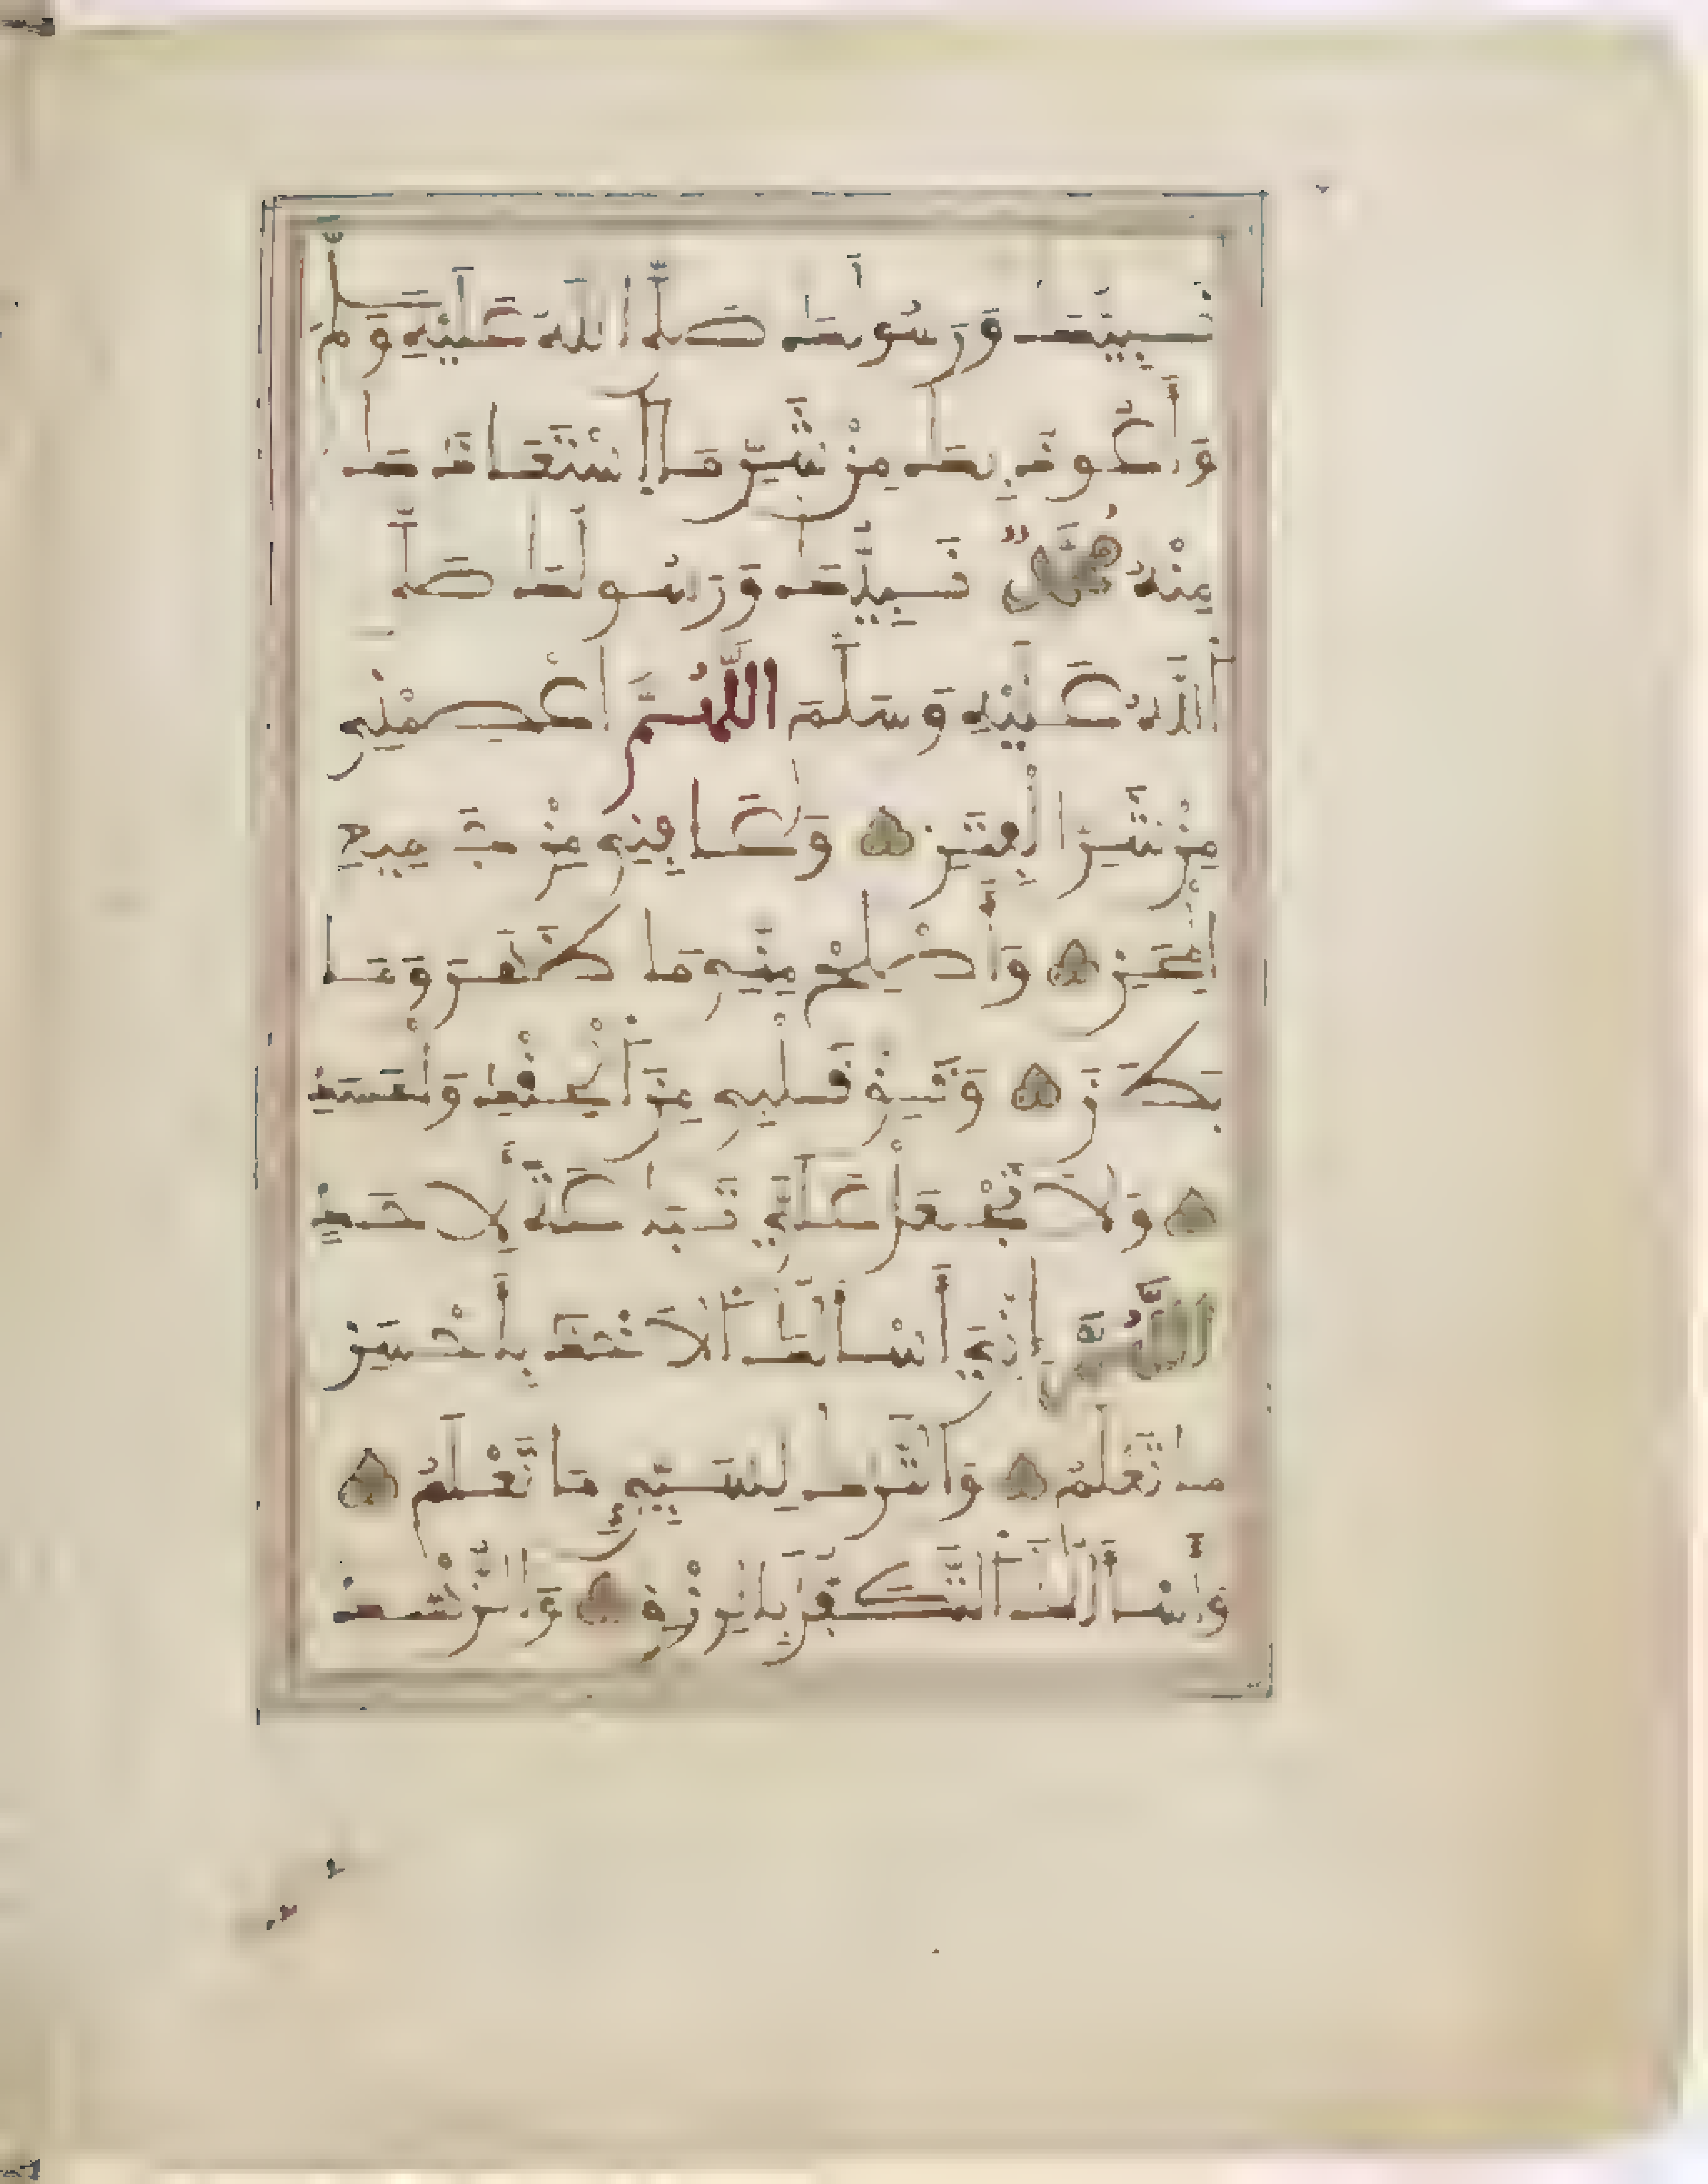 نَبِيُّكَ وَرَسُولُكَ صَلَّى اللَّهُ عَلَيْهِ وَسَلَّمَ
وَأَعُوذُ بِكَ مِنْ شَرِّ مَا اسْتَعَاذَكَ
مِنْهُ مُحَمَّدٌ نَبِيُّكَ وَرَسُولُكَ صَلَّى
اللَّهُ عَلَيْهِ وَسَلَّمَ اللَّهُمَّ اعْصِمْنِي
مِنْ شَرِّ الْفِتَنِ وَعَافِنِي مِنْ جَمِيعِ
الْمِحَنِ وَأَصْلِحْ مِنِّي مَا ظَهَرَ وَمَا
بَطَنَ وَنَقِّ قَلْبِي مِنَ الْحِقْدِ وَالْحَسَدِ
وَلَا تَجْعَلْ عَلَيَّ تَبَاعَةً لِأَحَدٍ
اللَّهُمَّ إِنِّي أَسْأَلُكَ الْأَخْذَ بِأَحْسَنِ
مَا تَعْلَمُ وَالتَّرْكَ لِسَيِّئِ مَا تَعْلَمُ
وَأَسْأَلُكَ التَّكَفُّلَ بِالرِّزْقِ وَالزُّهْدَ